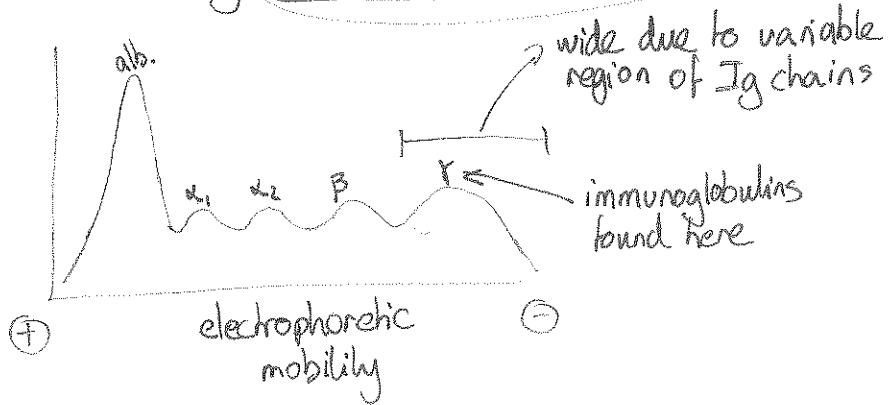 alb.
α₁
α₂
β
γ
wide due to variable
region of Ig chains
immunoglobulins
found here
+
electrophoretic
mobility
-